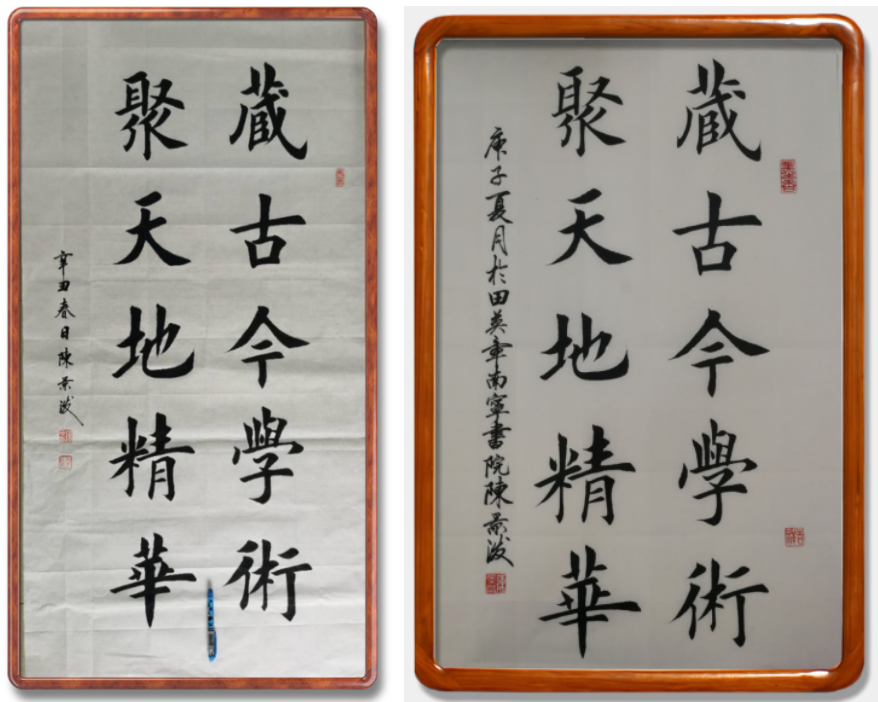 藏古今學術
聚天地精華
辛丑春日陳景波
藏古今學術
聚天地精華
庚子夏月於田英章南寧書院陳景波